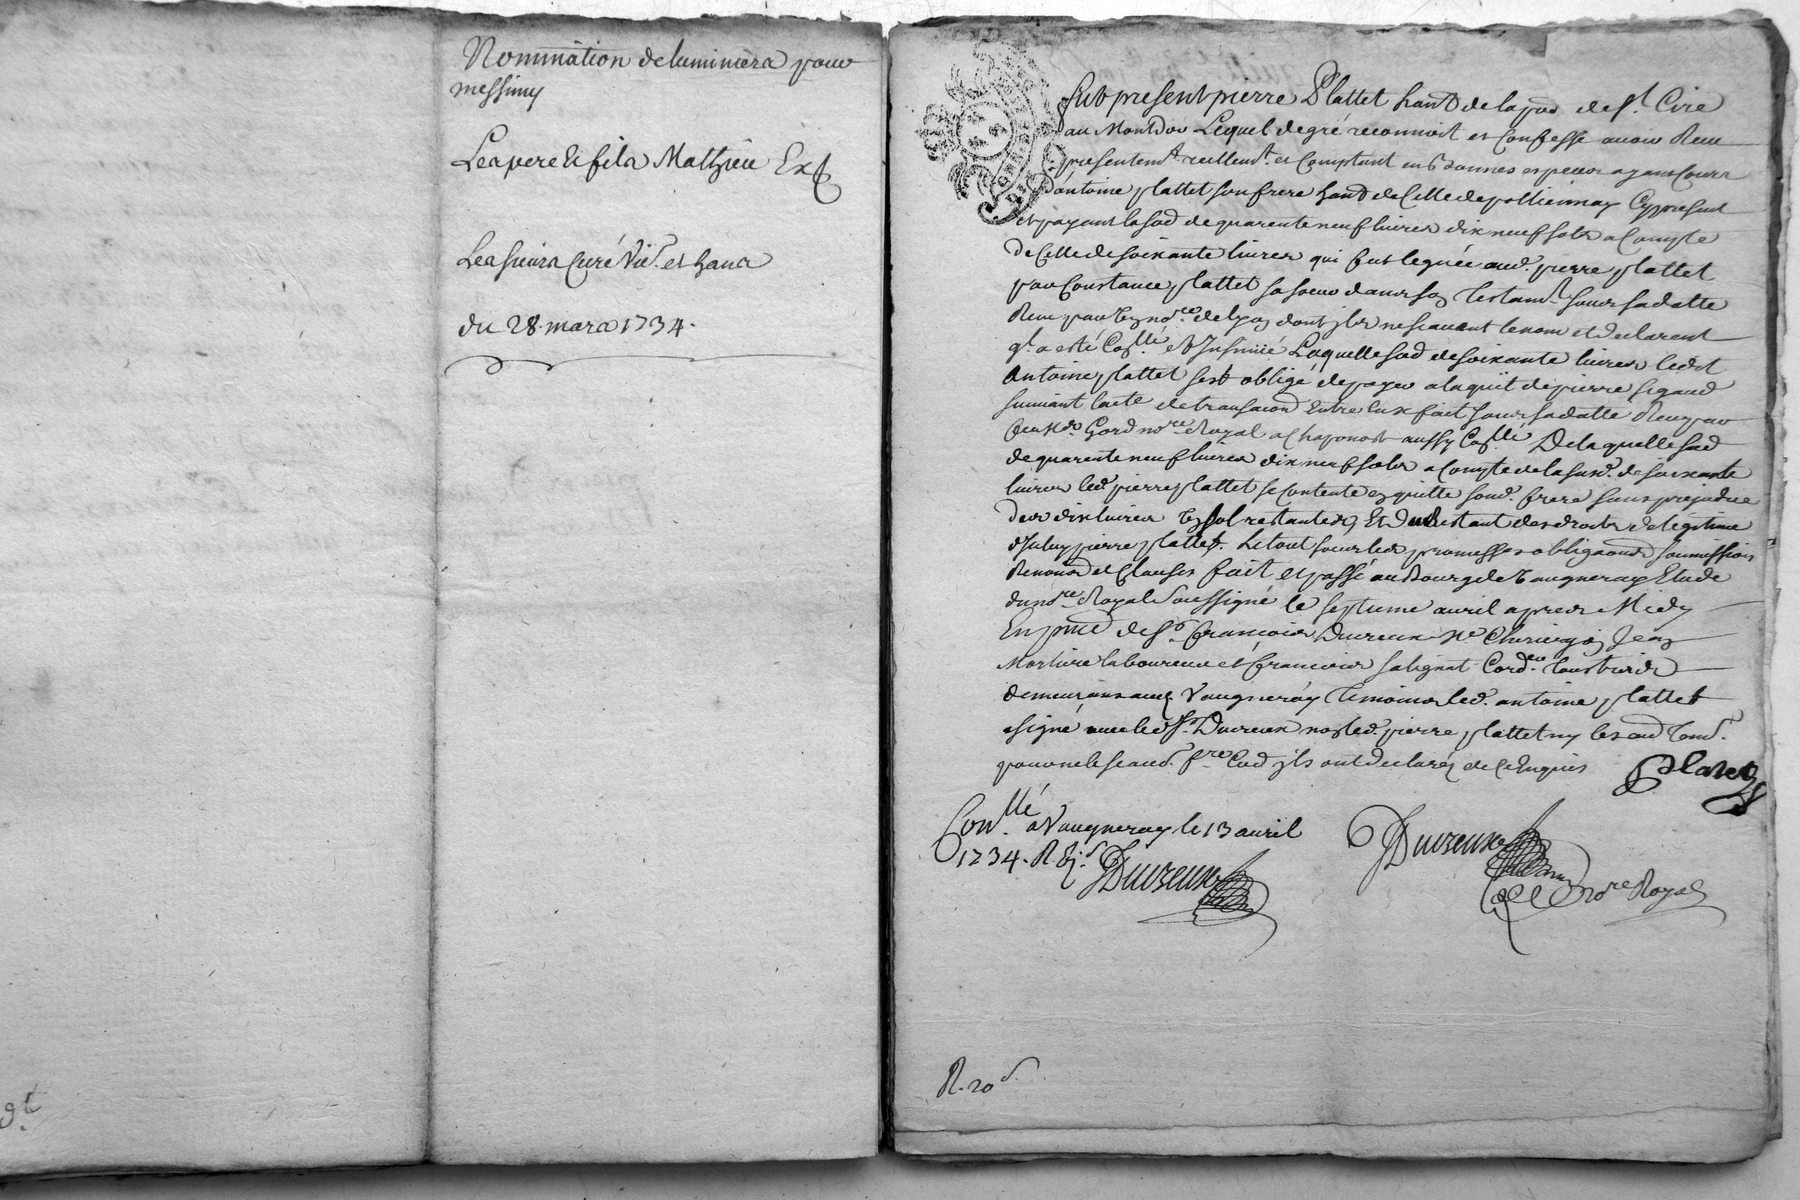 Nomination de luminiers pour
messimy
Les pere et fils Mathieu Ext
Les sieurs Curé Vic. et hans
du 28 mars 1734.
Fut present pierre Plattet hant de la par de St. Cire
au Montdor Lequel de gré reconnoit et Confesse avoir Receu
presentemt. reellemt. et Comptant en bonnes especes ayant Cours
d'antoine plattet son frere hant de Celle de pollionnay Cy present
et payant la so de quarente neuf livres dix neuf sols a Compte
de Celle de soixante livres qui fut leguée aud. pierre plattet
par Constance plattet sa soeur dans son Testamt. sous sa datte
Receu par un nore. de lyon dont ils ne scavent le nom et declarent
qt. a esté Conllé et Insinué Laquelle so de soixante livres ledt
Antoine plattet sest obligé de payer a laquit de pierre sigaud
suivant lacte de transaction Entre Eux fait sous sa datte Receu par
Me. Gord nore Royal a Chaponost aussy Conllé De laquelle so
de quarente neuf livres dix neuf sols a Compte de la sus. de soixante
livres led. pierre plattet se Contente en quitte soud. frere sans prejudice
des dix livres un sol restantes, Et du Restant des droits de legitime
d'Iceluy pierre plattet. Le tout sous les promesses obligaons soumissions
Renons et Clauses fait et passé au Bourg de Vaugneray Etude
du nore Royal soussigné le septieme avril apres Midy
En pnce de Sr. francois Ducreux Me Chirurgien Jean
laboureur et francois salignat Cordr. tous trois
demeurans aud. Vaugneray temoins led. antoine plattet
a signé avec led. Sr. Ducreux non led. pierre plattet ny les aud tems.
pour ne le scavoir ils ont declaré de ce Enquis
Plattet
Conllé a Vaugneray le 13 avril
1734. R
Ducreux
Ducreux
nore Royal
R. 20 s